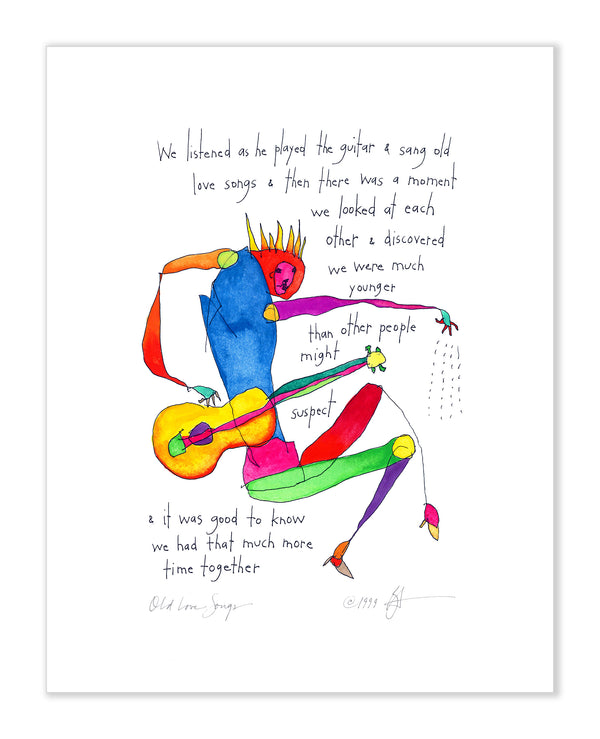 We listened as he played the guitar & sang old
love songs & then there was a moment
we looked at each
other & discovered
we were much
younger
than other people
might
suspect
& it was good to know
we had that much more
time together
Old Love Songs
© 1999